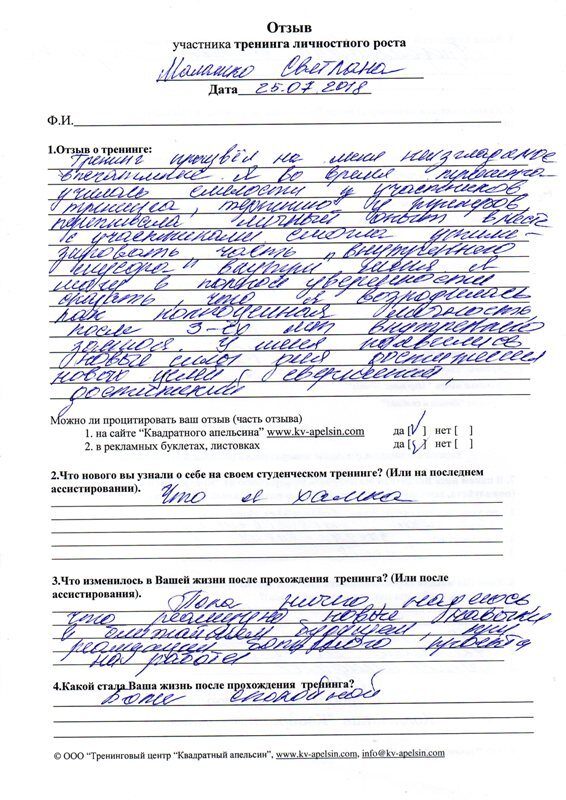 Отзыв
участника тренинга личностного роста
Малашко Светлана
Дата 25.07.2018
Ф.И.
1.Отзыв о тренинге:
Тренинг произвёл на меня неизгладимое
впечатление. Я во время тренинга
училась смелости у участников
тренинга, терпению у тренеров
личный опыт вместе
с участниками смогла утили-
зировать часть „внутреннего
мусора" внутри себя. Я
могу в полной уверенности
сказать, что я возродилась
как полноценная личность
после 3-ёх лет внутреннего
У меня появились
новые силы для достижения
новых целей, свершений,
достижений.
Можно ли процитировать ваш отзыв (часть отзыва)
1. на сайте “Квадратного апельсина” www.kv-apelsin.com да [√] нет [ ]
2. в рекламных буклетах, листовках да [√] нет [ ]
2.Что нового вы узнали о себе на своем студенческом тренинге? (Или на последнем
ассистировании). Что я хамка
3.Что изменилось в Вашей жизни после прохождения тренинга? (Или после
ассистирования). Пока ничего, надеюсь
что реализую новые навыки
в ближайшем будущем, при
реализации проекта
на работе
4.Какой стала Ваша жизнь после прохождения тренинга?
Более спокойной
© ООО “Тренинговый центр “Квадратный апельсин”, www.kv-apelsin.com, info@kv-apelsin.com